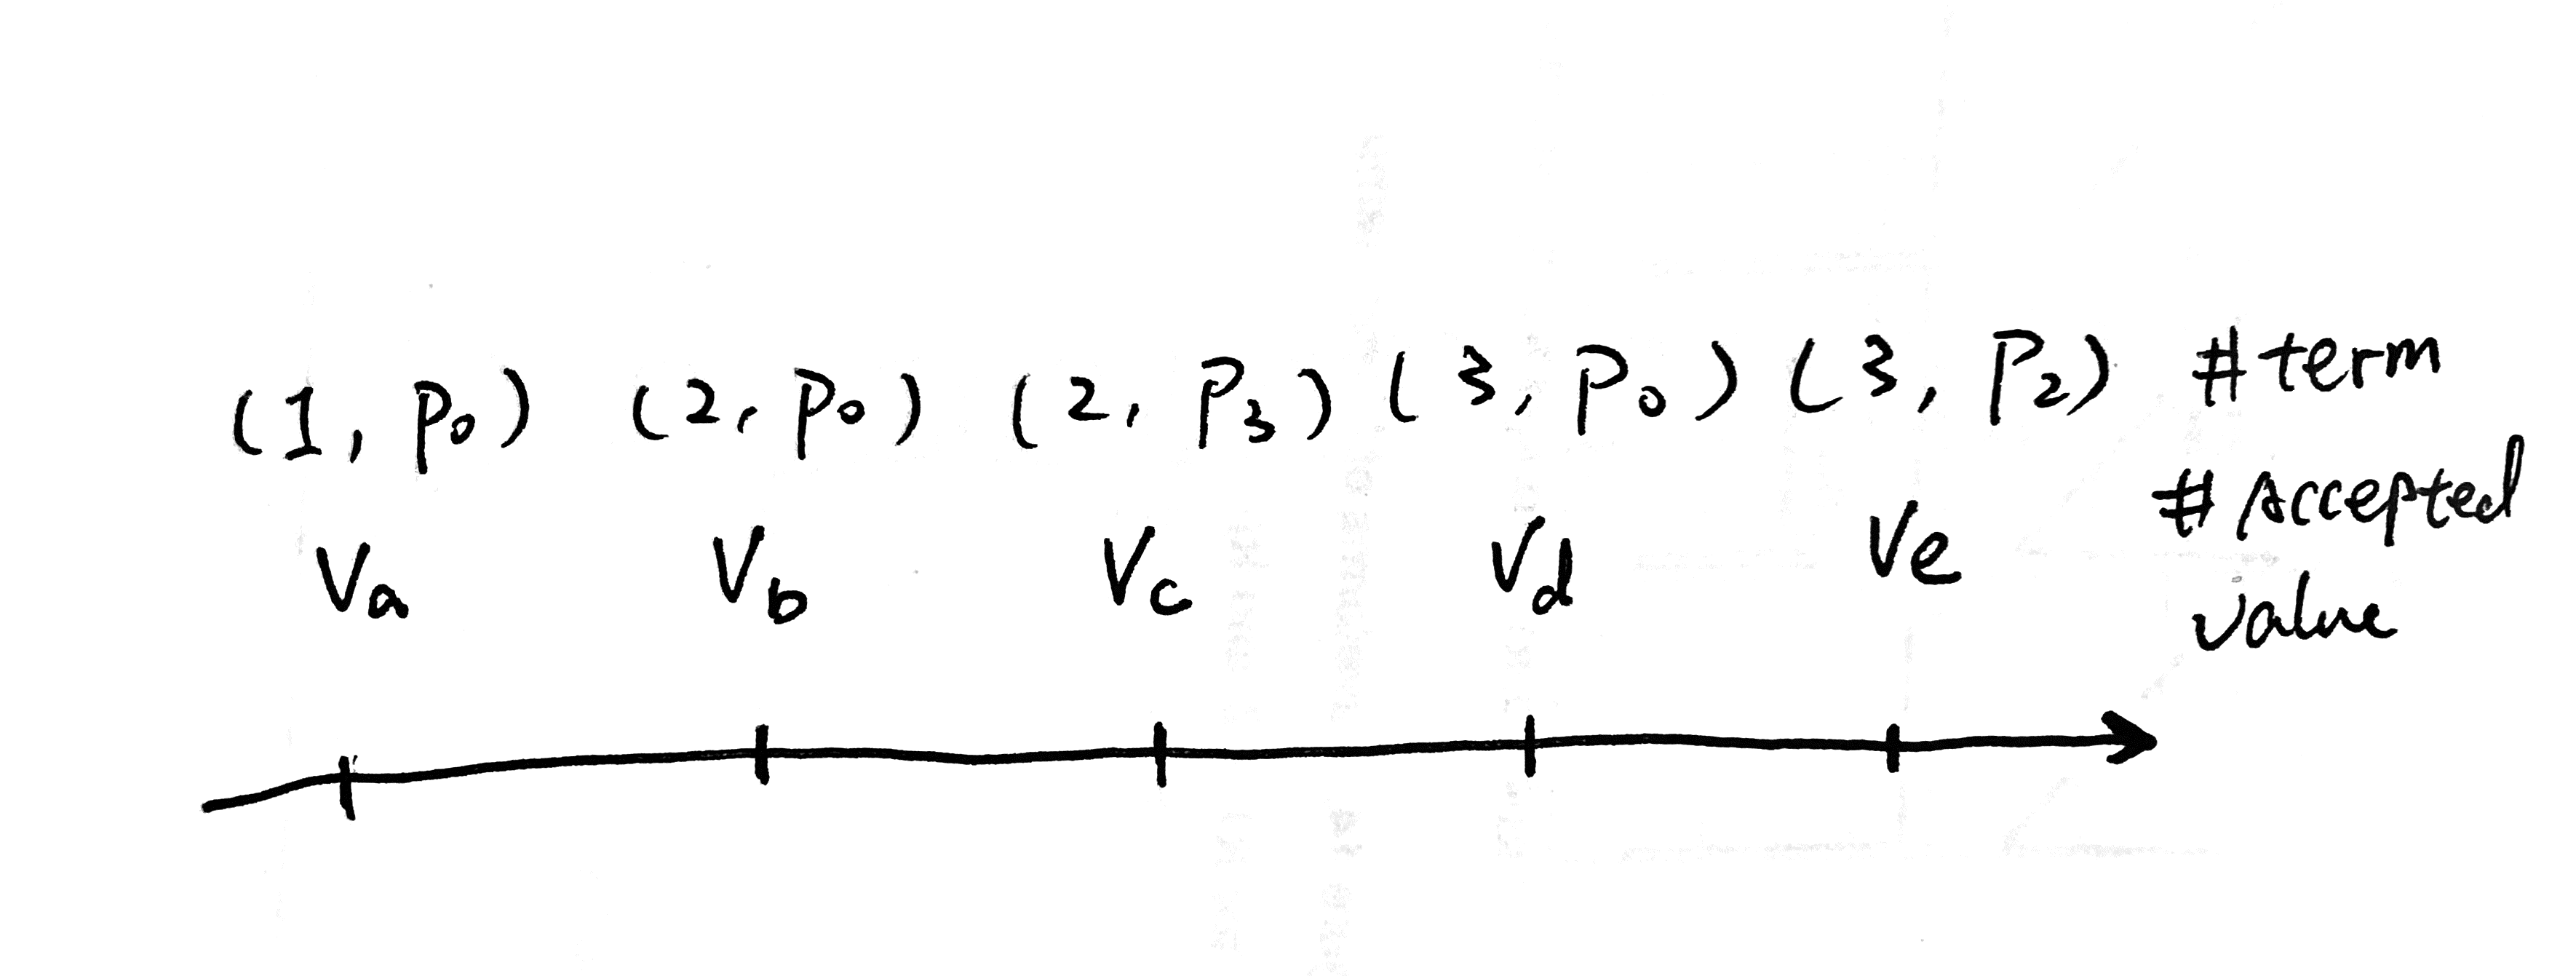 (1, P₀) (2, P₀) (2, P₃) (3, P₀) (3, P₂) #term
Va Vb Vc Vd Ve #Accepted
value